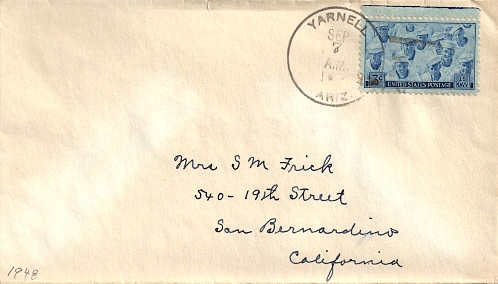 YARNELL
SEP
7
A.M.
ARIZ.
3¢
UNITED STATES POSTAGE
NAVY
Mrs S M Frick
540-19th Street
San Bernardino
California
1948